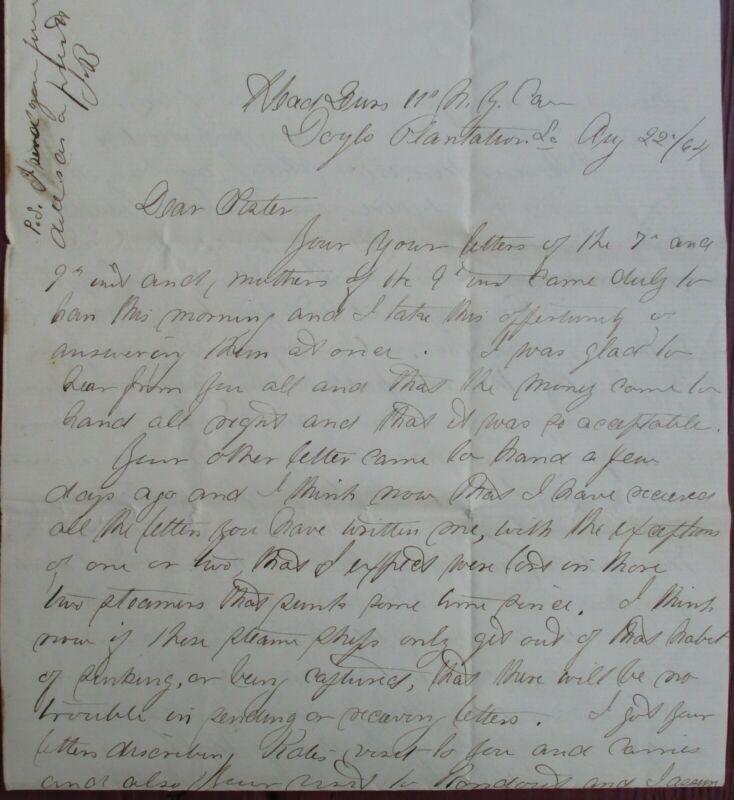 Head Qurs 11th N. Y. Cav
Doyls Plantation La Aug 22nd/64
Dear Sister
Your Your letters of the 7th and
9th inst and, mothers of the 9th inst came duly to
han this morning and I take this oppertunity of
answering them at once. I was glad to
hear from you all and that the money came to
hand all right and that it was so acceptable.
Your other letter came to hand a few
days ago and I think now that I have recieved
all the letters you have written me, with the exceptions
of one or two, that I expect were lost in those
two steamers that sunk some time since. I think
now if these steam ships only get out of that habit
of sinking, or being captured, that there will be no
trouble in sending or receiving letters. I got your
letters discribing Kates visit to you and carries
and also your visit to and I assure
P.S. I send you
address as a
J.B